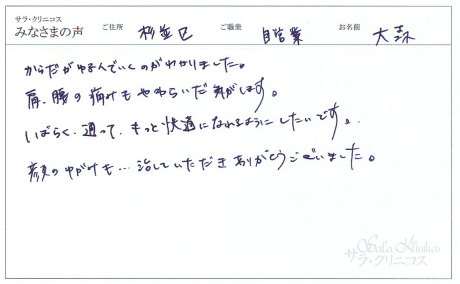 サラ・クリニコス
みなさまの声 ご住所 杉並区 ご職業 自営業 お名前 大森
からだがゆるんでいくのがわかりました。
肩、腰の痛みもやわらいだ気がします。
しばらく、通って、もっと快適になれるようにしたいです。
顔のゆがみも…治していただきありがとうございました。
Sala Klinikos
サラ・クリニコス